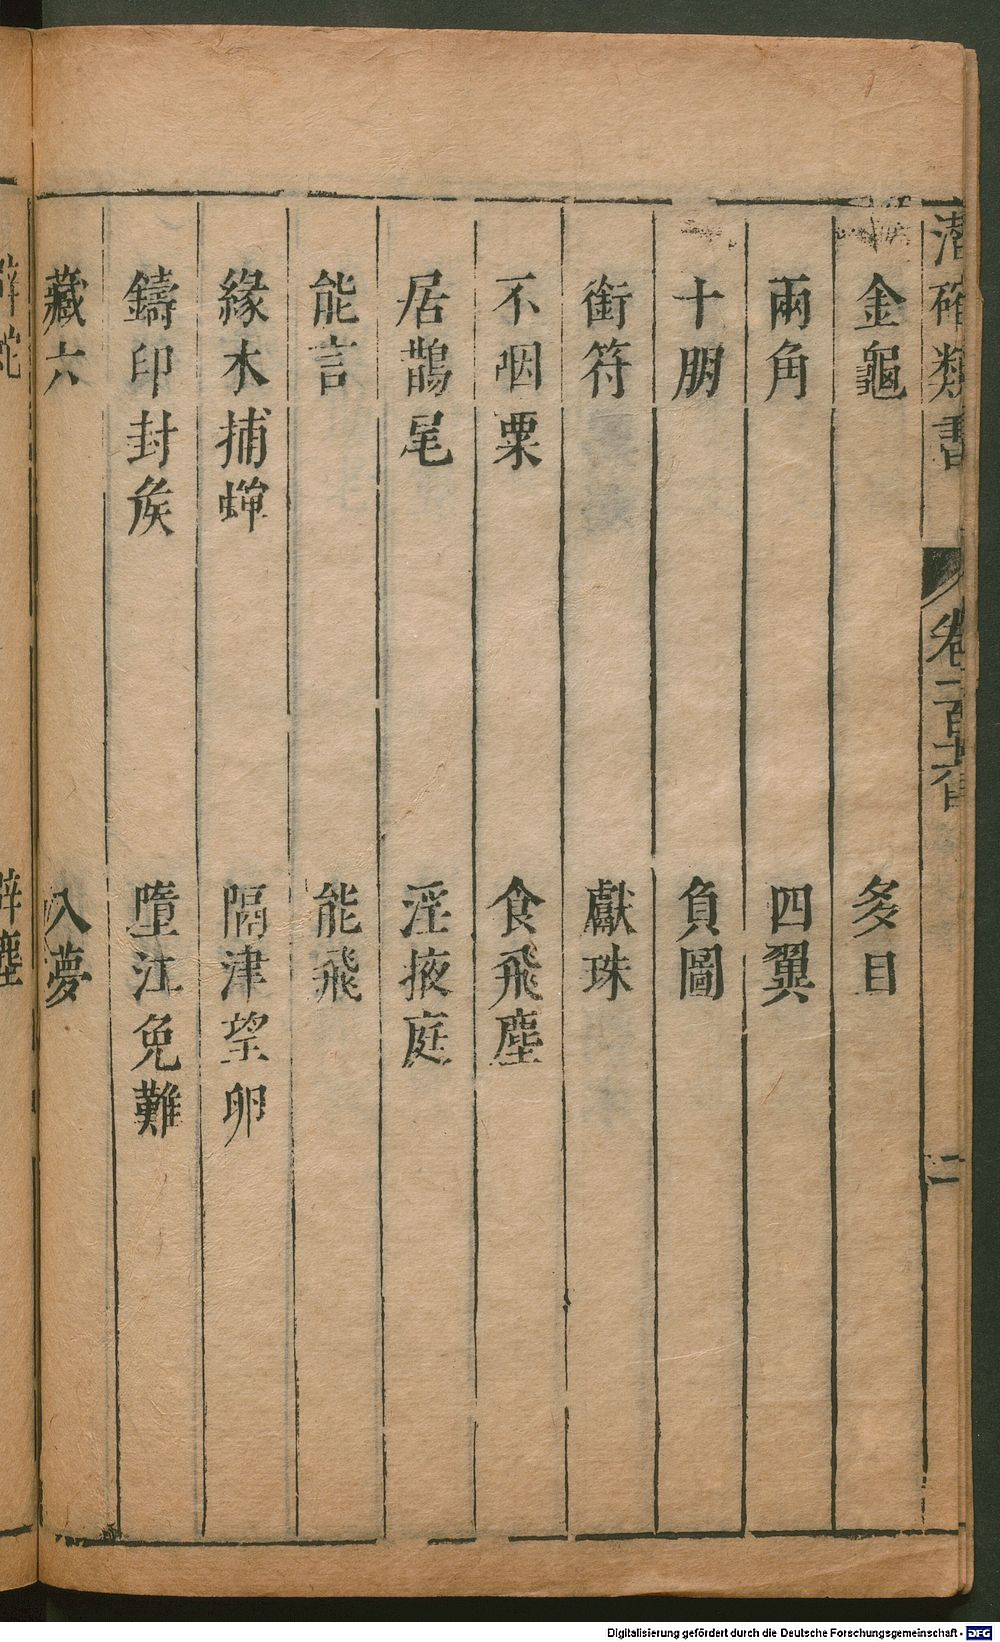 潛確類書 卷一百十八 目 二
金龜 多目
兩角 四翼
十朋 負圖
銜符 獻珠
不咽粟 食飛塵
居鵲尾 淫掖庭
能言 能飛
緣木捕蟬 隔津望卵
鑄印封矦 墮江免難
藏六 入夢
辟蛇 辟塵
Digitalisierung gefördert durch die Deutsche Forschungsgemeinschaft - DFG